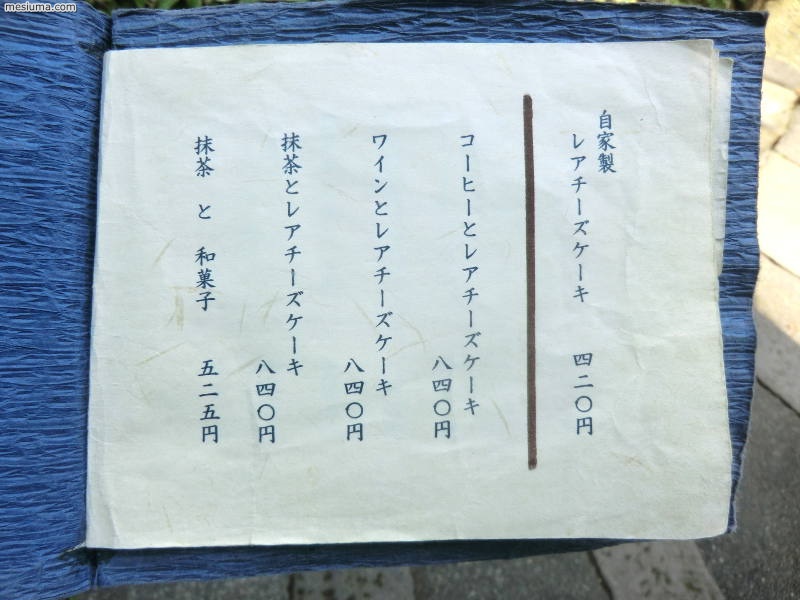 mesluma.com
自家製
レアチーズケーキ 四二〇円
コーヒーとレアチーズケーキ
八四〇円
ワインとレアチーズケーキ
八四〇円
抹茶とレアチーズケーキ
八四〇円
抹茶 と 和菓子 五二五円